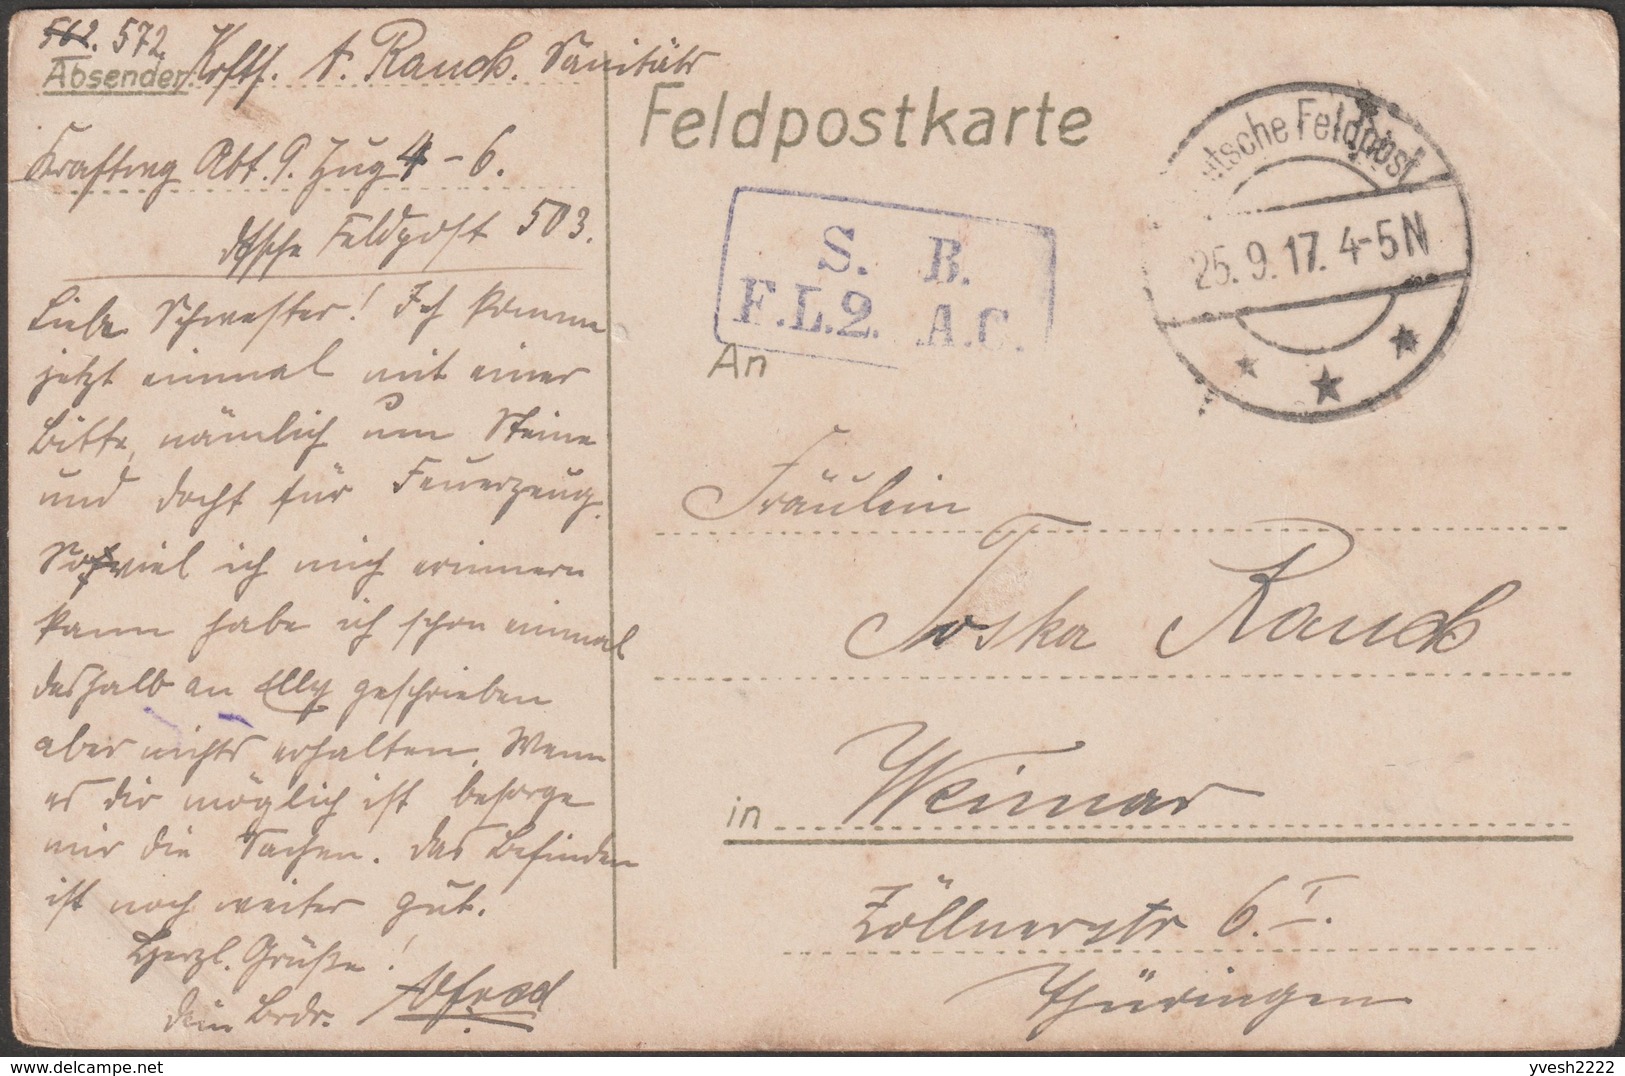 562. 572.
Absender Krftf. A. Rauch. Sanitäts
Kraftwg Abt. 9. Zug 4 - 6.
dtsche Feldpost 503.
Liebe Schwester! Ich komme
jetzt einmal mit einer
Bitte, nämlich um Steine
und docht für Feuerzeug.
Soviel ich mich erinnern
kann habe ich schon einmal
deshalb an Elly geschrieben
aber nichts erhalten. Wenn
es dir möglich ist besorge
mir die Sachen. Das Befinden
ist noch weiter gut.
Herzl. Grüße!
dein Brdr. Alfred
Feldpostkarte
Deutsche Feldpost
25.9.17. 4-5N
S. B.
F.L.2. A.C.
An
Fräulein
Toska Rauch
in Weimar
Zöllnerstr 6.I.
Thüringen
yvesh2222